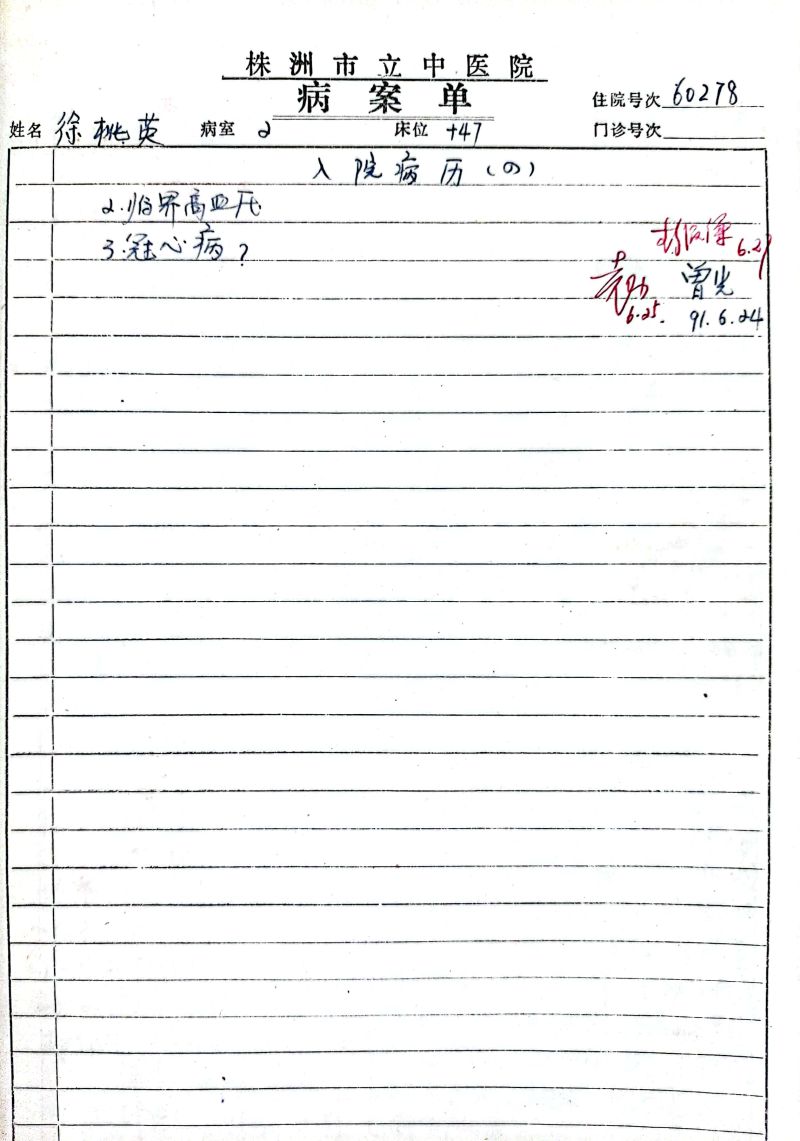 株洲市立中医院
病案单
住院号次 60278
姓名 徐桃英 病室 2 床位 +47 门诊号次
入院病历(の)
2.临界高血压
3.冠心病?
6.27
曾光
6.25. 91.6.24